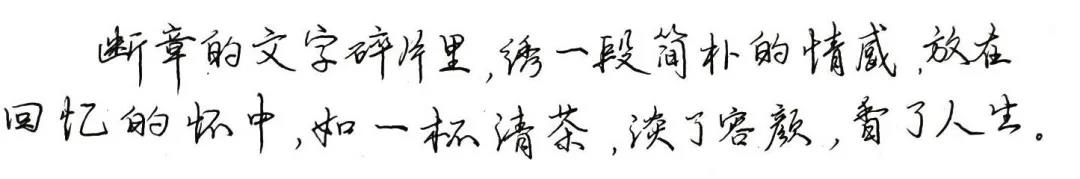 断章的文字碎片里,绣一段简朴的情感,放在
回忆的怀中,如一杯清茶,淡了容颜,香了人生。